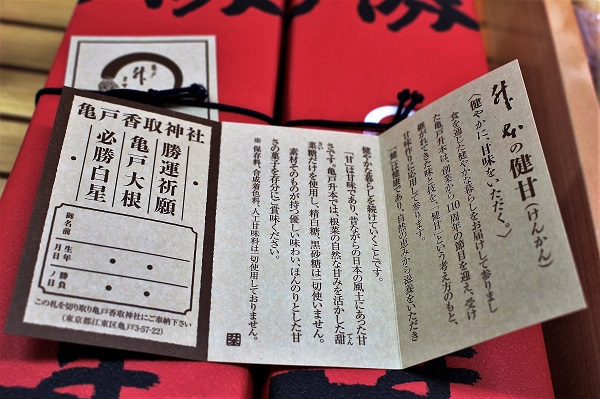 升本の健甘(けんかん)
〈健やかに、甘味をいただく。〉
食を通した健やかな暮らしをお届けして参りまし
た亀戸升本は、創業から110周年の節目を迎え、受け
継がれてきた味と技を、「健甘」という考え方のもと、
甘味作りに応用して参ります。
「健」は健康であり、自然の恵みから滋養をいただき
健やかな暮らしを続けていくことです。
「甘」は甘味であり、昔ながらの日本の風土にあった甘
さです。亀戸升本では、根菜の自然な甘みを活かした甜
菜糖だけを使用し、精白糖、黒砂糖は一切使いません。
素材そのものが持つ優しい味わい、ほんのりとした甘
さの菓子を存分にご賞味ください。
※ 保存料、合成着色料、人工甘味料は一切使用しておりません。
亀戸香取神社
勝運祈願
亀戸大根
必勝白星
御名前
生年月日
勝負ノ日
この札を切り取り亀戸香取神社にご奉納下さい
(東京都江東区亀戸3-57-22)
亀戸
升本